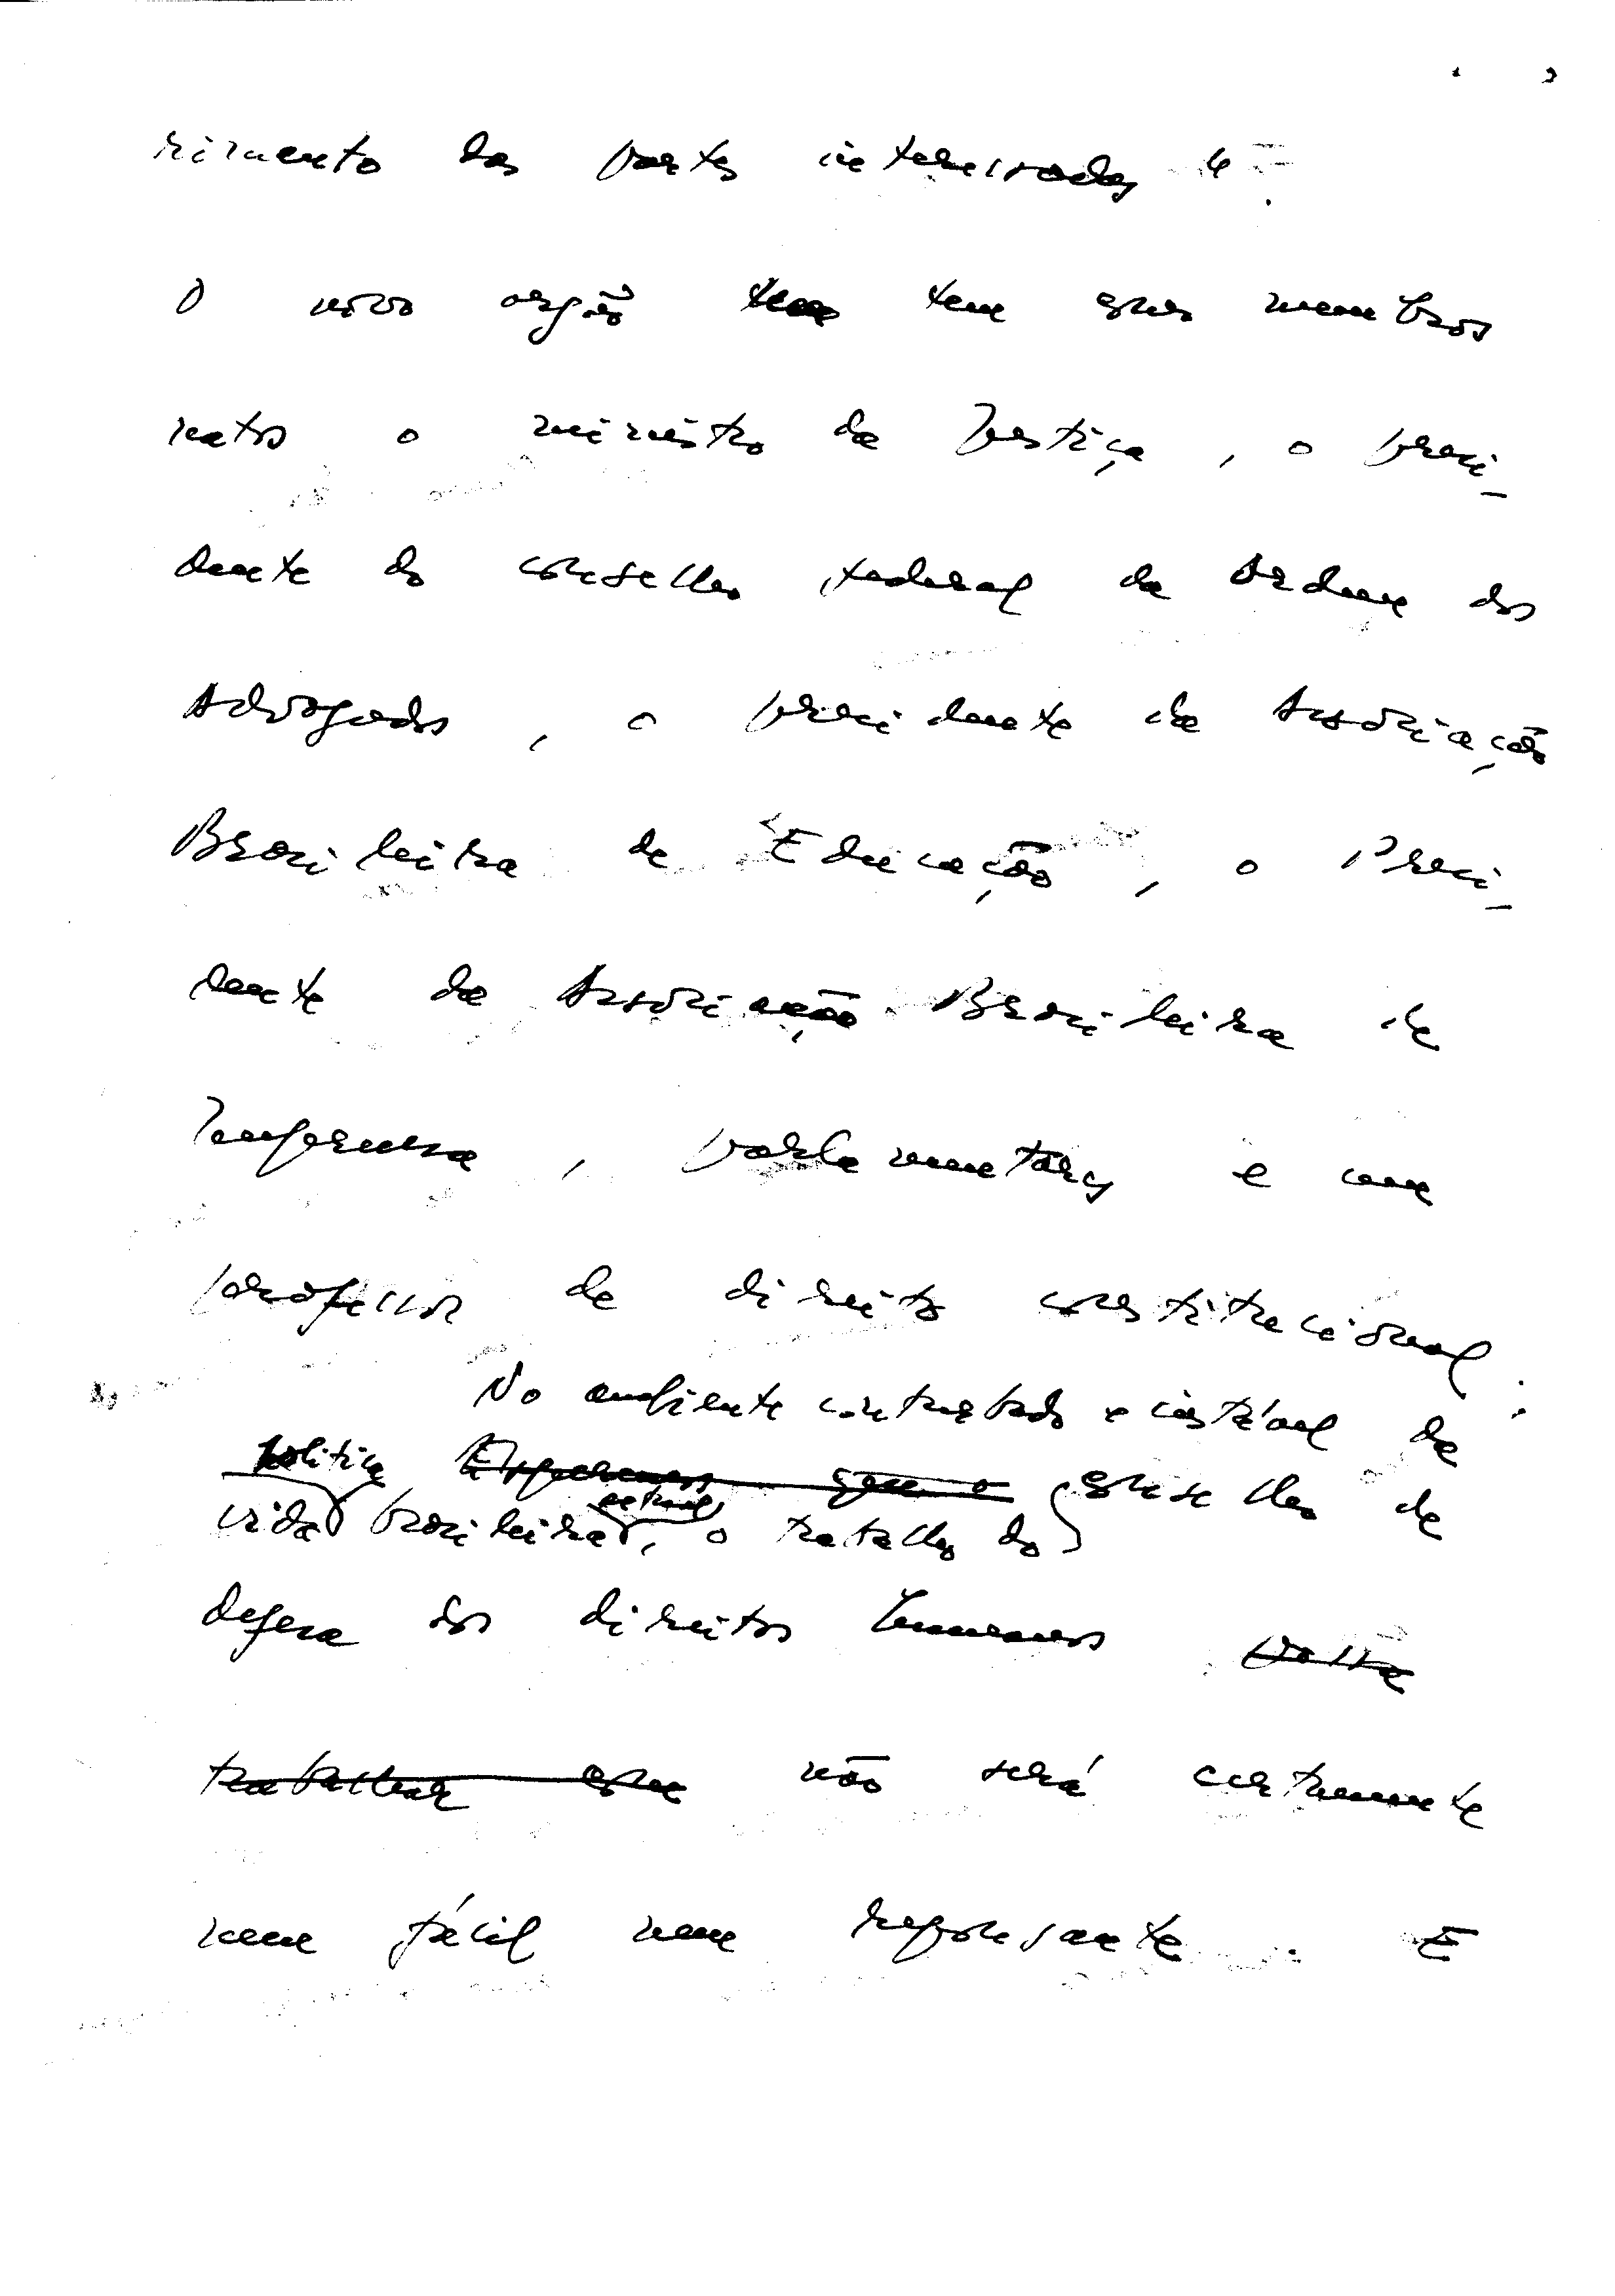 rimento das partes interessadas.
O novo orgão tem tem como membros
natos o ministro da Justiça, o presi-
dente do conselho federal da Ordem dos
Advogados, o presidente da Associação
Brasileira de Educação, o Presi-
dente da Associação Brasileira de
Imprensa, parlamentares e um
professor de direito constitucional.
No ambiente conturbado e instável da
política Esperamos que o conselho de
vida brasileira actual, o trabalho do
defesa dos direitos humanos possa
trabalhar não será certamente
nem fácil nem repousante. E